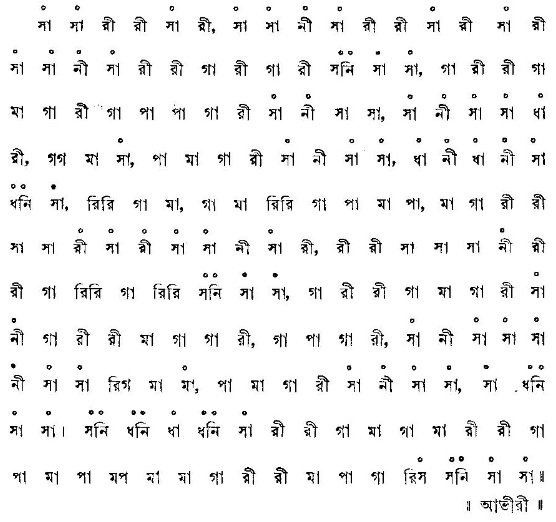 সা৾ সা৾ রী রী সা৾ রী, সা৾ সা৾ নী৾ সা৾ রী রী সা৾ রী সা৾ রী
সা৾ সা৾ নী৾ সা৾ রী রী গা রী গা রী স৾নি৾ সা৾ সা৾, গা রী রী গা
মা গা রী গা পা পা গা রী সা৾ নী৾ সা সা, সা৾ নী৾ সা৾ সা৾ ধা৾
রী, গগ মা সা৾, পা মা গা রী সা৾ নী৾ সা৾ সা৾, ধা৾ নী৾ ধা৾ নী৾ সা৾
ধ৾নি৾ সা৾, রিরি গা মা, গা মা রিরি গা পা মা পা, মা গা রী রী
সা সা রী৾ সা৾ রী৾ সা৾ সা৾ নী৾ সা৾ রী, রী রী সা সা সা নী৾ রী
রী গা রিরি গা রিরি স৾নি৾ সা৾ সা৾, গা রী রী গা মা গা রী সা৾
নী৾ গা রী রী মা গা গা রী, গা পা গা রী, সা৾ নী৾ সা৾ সা৾ সা৾
নী৾ সা৾ সা৾ রিগ মা মা৾, পা মা গা রী সা৾ নী৾ সা৾ সা৾, সা৾ ধ৾নি৾
সা৾ সা৾। স৾নি৾ ধ৾নি৾ ধা৾ ধ৾নি৾ সা৾ রী রী গা মা গা মা রী রী গা
পা মা পা মপ মা মা গা রী রী মা পা গা রিস৾ স৾নি৾ সা৾ সা৾॥
॥ আভীরী ॥